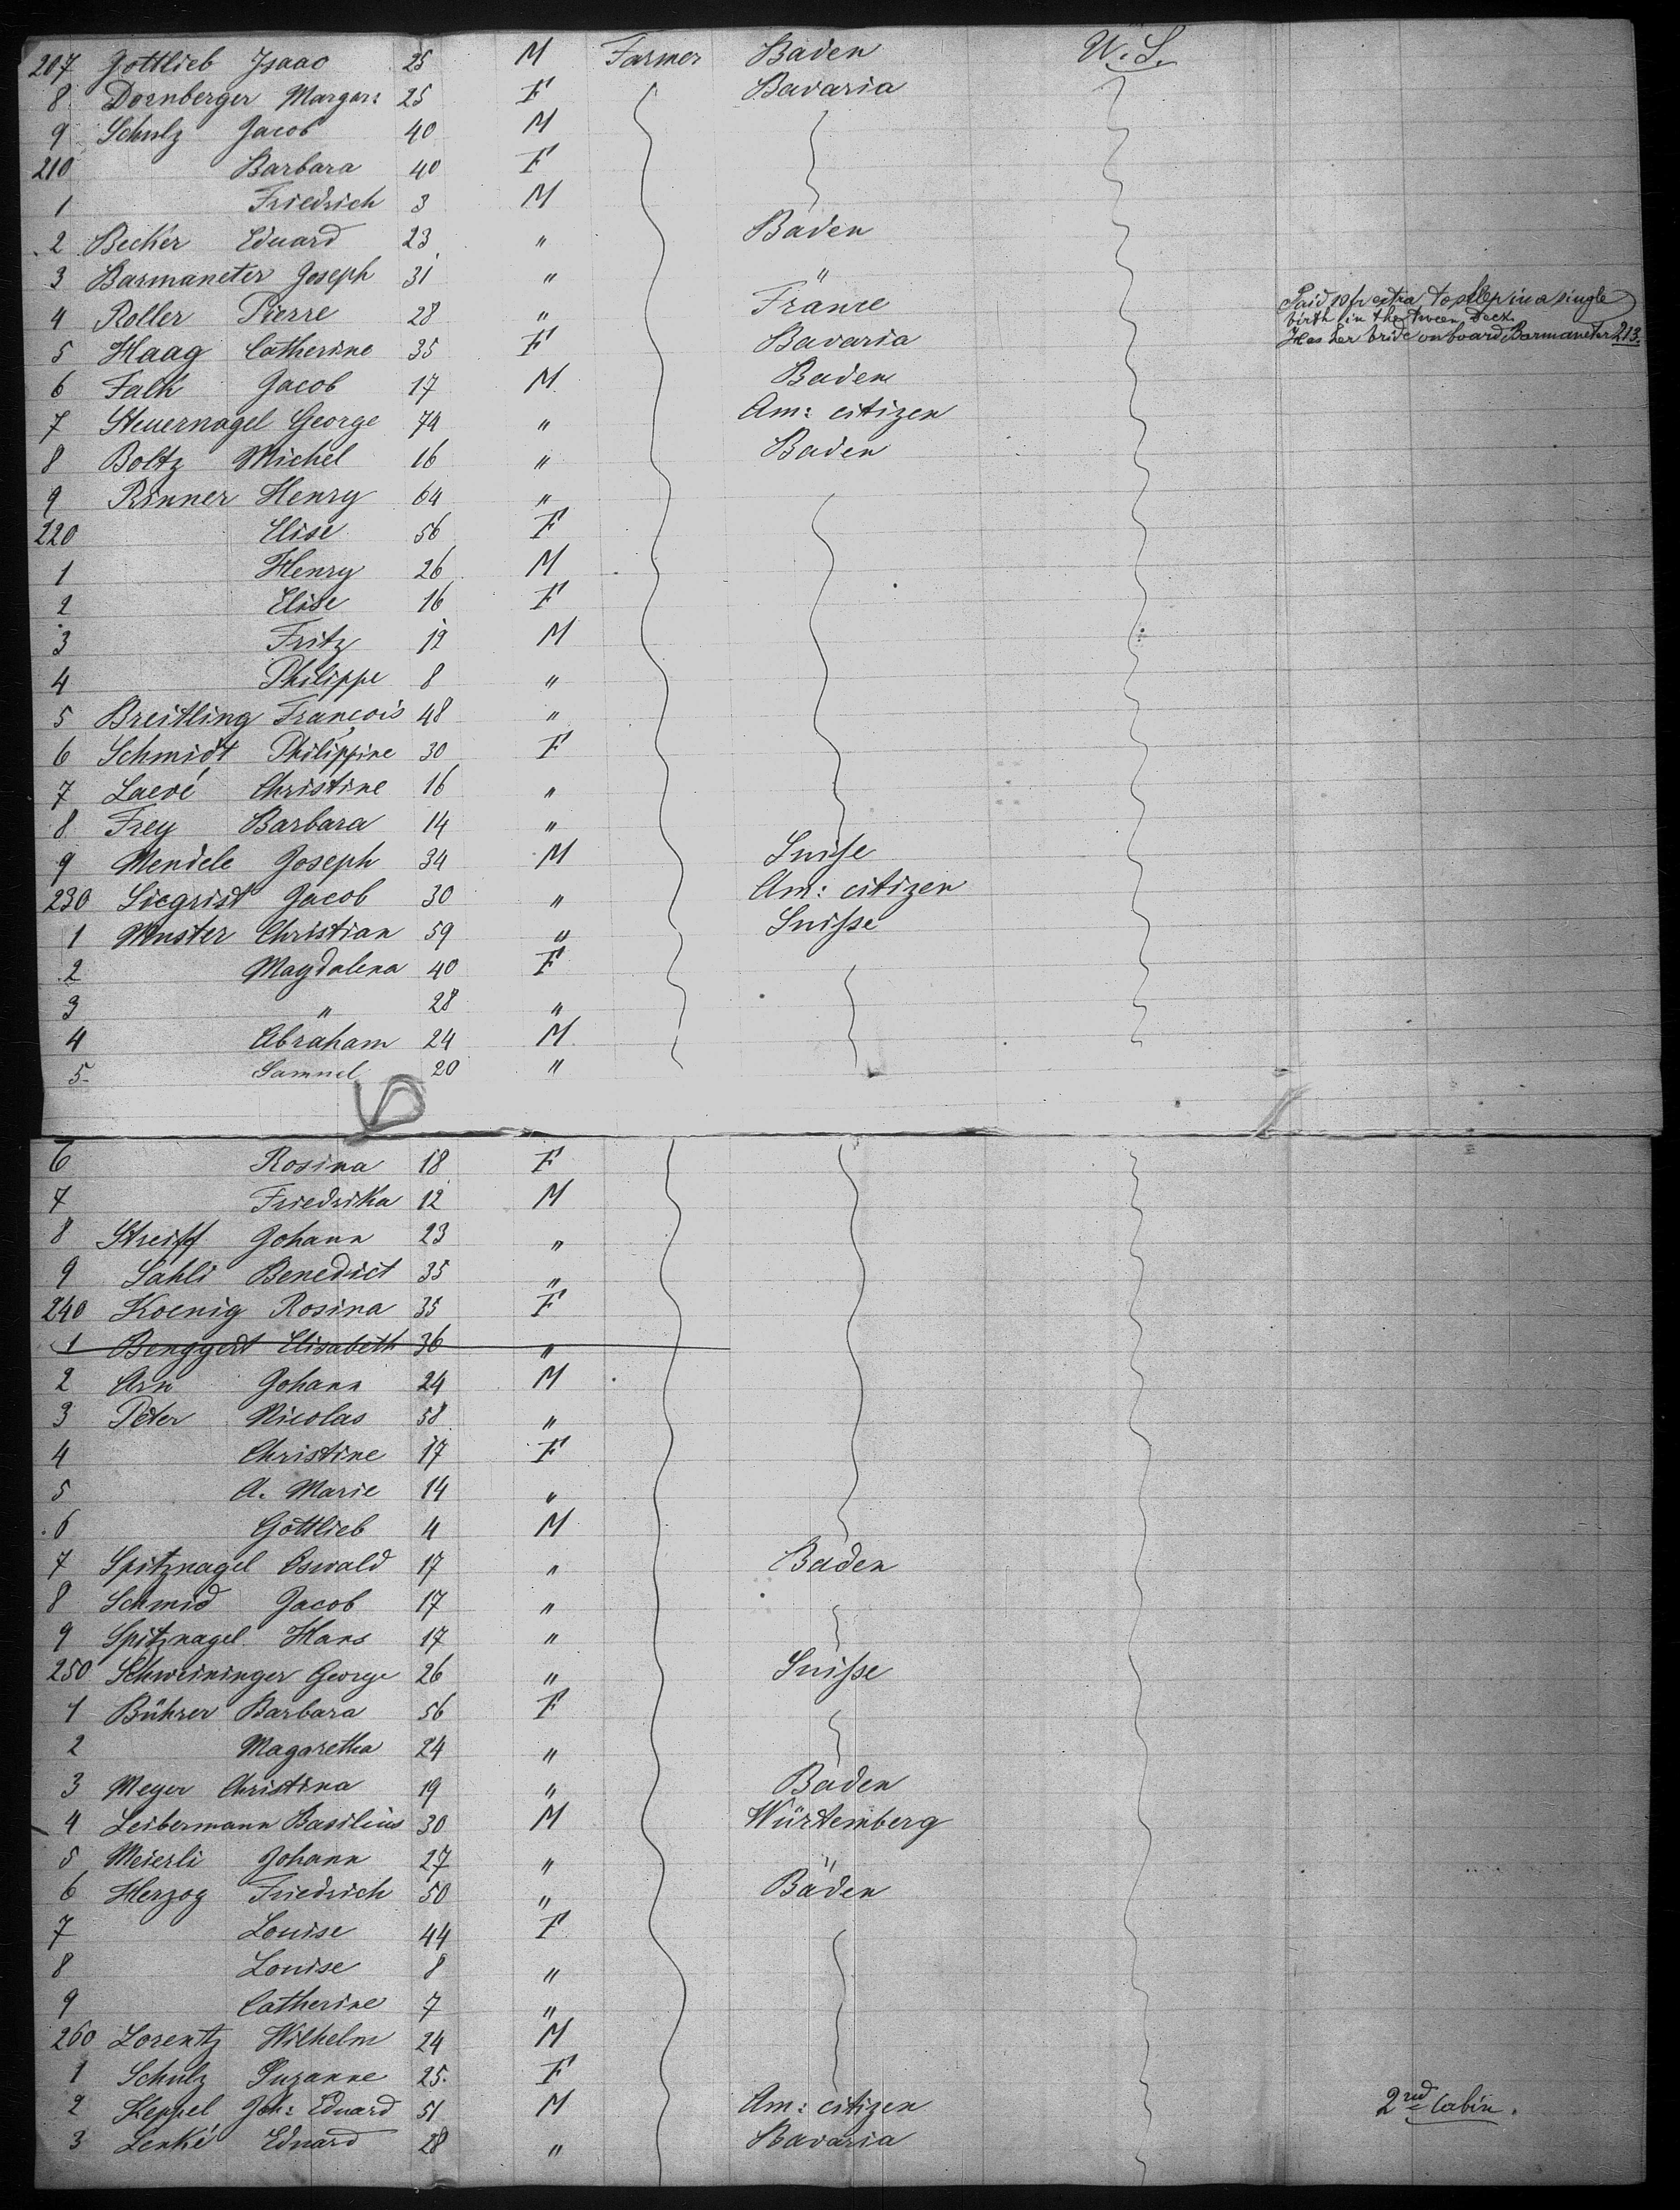 207 Gottlieb Isaac 25 M Farmer Baden U. S.
8 Dornberger Margar: 25 F Bavaria
9 Schulz Jacob 40 M
210 Barbara 40 F
1 Friedrich 3 M
2 Becker Eduard 23 " Baden
3 Barmaneter Joseph 31 " "
4 Roller Pierre 28 " France Paid 10 fr extra to sleep in a single
birth in the tween deck
5 Haag Catherine 35 F Bavaria Has her bride on board Barmaneter 213.
6 Falk Jacob 17 M Baden
7 Steuernagel George 74 " Am: citizen
8 Boltz Michel 16 " Baden
9 Rinner Henry 64 "
220 Elise 56 F
1 Henry 26 M
2 Elise 16 F
3 Fritz 12 M
4 Philippe 8 "
5 Breitling François 48 "
6 Schmidt Philippine 30 F
7 Laevé Christine 16 "
8 Frey Barbara 14 "
9 Mendele Joseph 34 M Suisse
230 Siegrist Jacob 30 " Am: citizen
1 Muster Christian 59 " Suisse
2 Magdalena 40 F
3 " 28 "
4 Abraham 24 M
5 Samuel 20 "
6 Rosina 18 F
7 Friedrika 12 M
8 Streiff Johann 23 "
9 Sahli Benedict 35 "
240 Koenig Rosina 35 F
1 Benggert Elisabeth 36 "
2 Arn Johann 24 M
3 Peter Nicolas 58 "
4 Christine 17 F
5 A. Marie 14 "
6 Gottlieb 4 M
7 Spitznagel Oswald 17 " Baden
8 Schmid Jacob 17 "
9 Spitznagel Hans 17 "
250 Schweininger George 26 " Suisse
1 Bührer Barbara 56 F
2 Magaretha 24 "
3 Meyer Christina 19 " Baden
4 Leibermann Basilius 30 M Würtemberg
5 Meierli Johann 27 " "
6 Herzog Friedrich 50 " Baden
7 Louise 44 F
8 Louise 8 "
9 Catherine 7 "
260 Lorentz Wilhelm 24 M
1 Schulz Suzanne 25 F
2 Keppel Joh: Eduard 51 M Am: citizen 2nd Cabin.
3 Lenké Eduard 28 " Bavaria